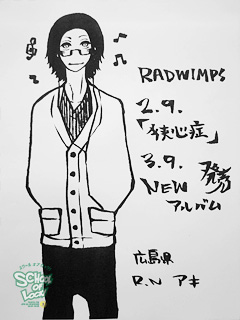 RADWIMPS
2.9.
「狭心症」
3.9. 発売
NEW
アルバム
広島県
R.N アキ
SCHOOL
OF
LOCK!